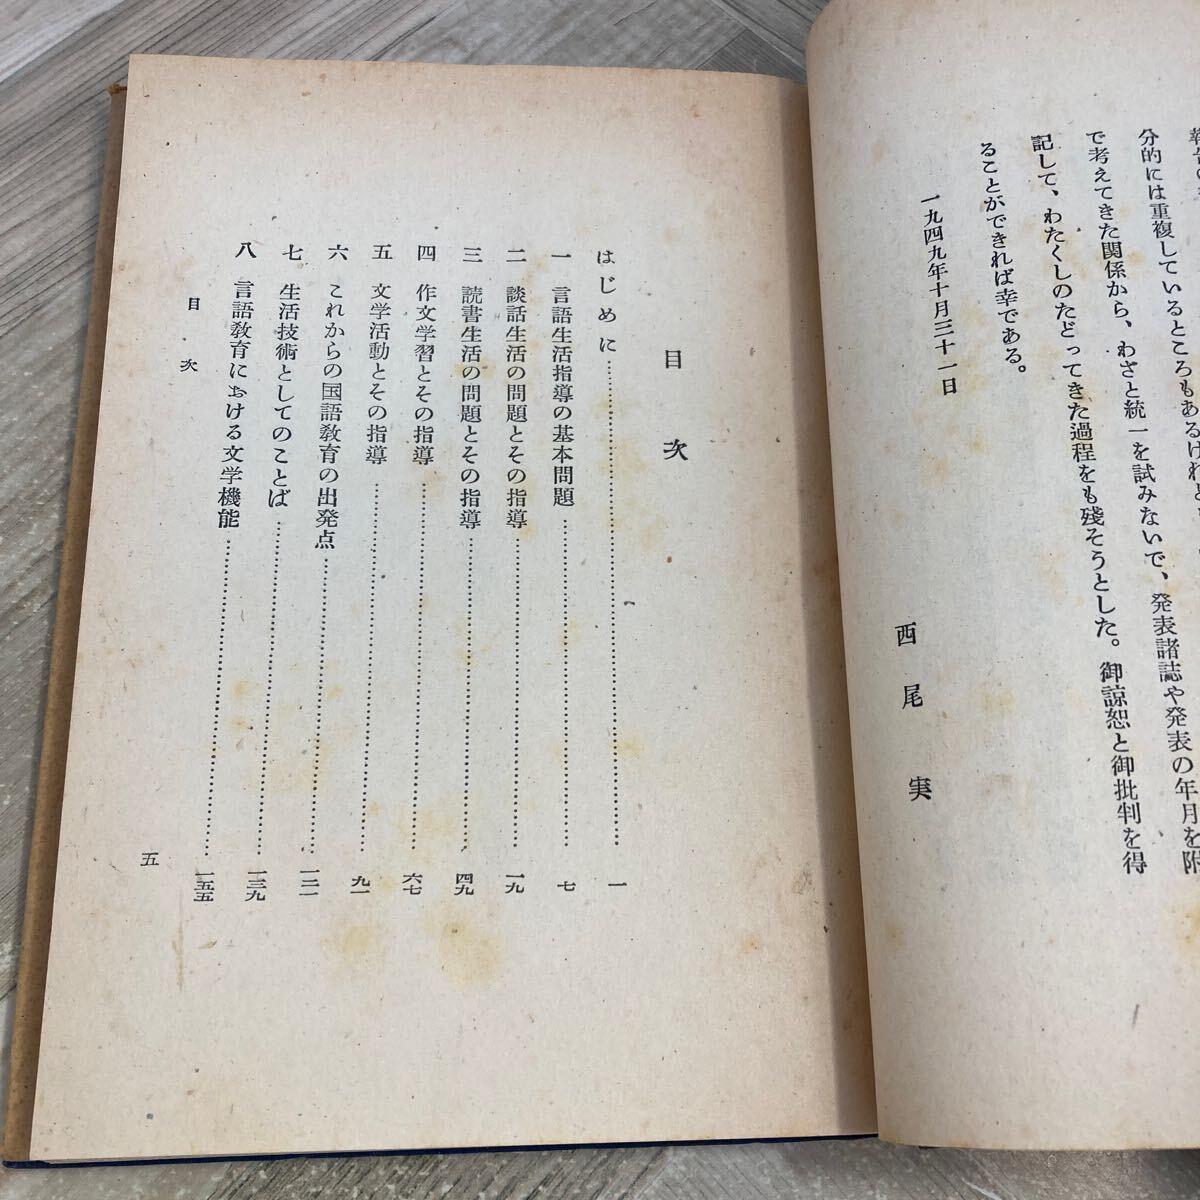 分的には重複しているところもあるけれ
で考えてきた関係から、わざと統一を試みないで、発表諸誌や発表の年月を附
記して、わたくしのたどってきた過程をも残そうとした。御諒恕と御批判を得
ることができれば幸である。
一九四九年十月三十一日
西尾実
目次
はじめに……一
一 言語生活指導の基本問題……七
二 談話生活の問題とその指導……一九
三 読書生活の問題とその指導……四九
四 作文学習とその指導……六七
五 文学活動とその指導……九一
六 これからの国語教育の出発点……一二一
七 生活技術としてのことば……一三九
八 言語教育における文学機能……一五五
目次
五